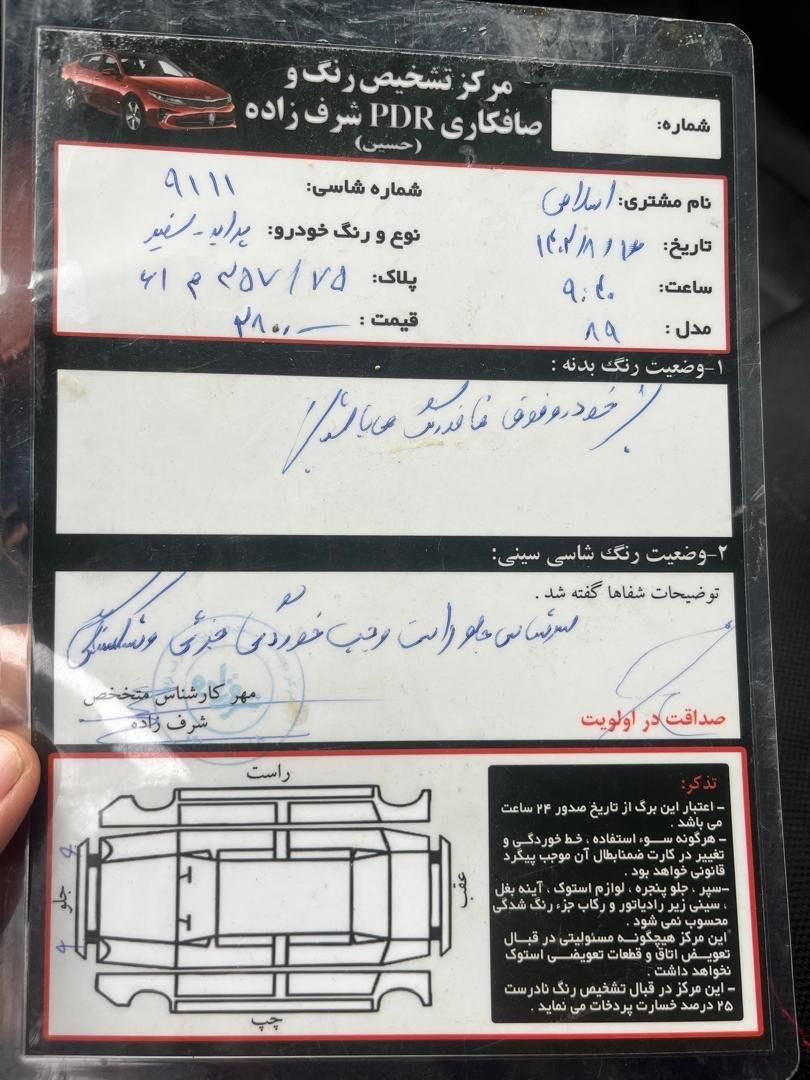 مرکز تشخیص رنگ و
صافکاری PDR شرف زاده
(حسین)
شماره:
نام مشتری: اسلامی
شماره شاسی: ۹۱۱۱
تاریخ:
نوع و رنگ خودرو: پراید - سفید
ساعت: ۹:۴۰
پلاک:
مدل: ۸۹
قیمت:
۱-وضعیت رنگ بدنه :
خودرو فوق فاقد رنگ می باشد
۲-وضعیت رنگ شاسی سینی:
توضیحات شفاها گفته شد .
سرشاسی جلو راست و چپ خوردگی جزئی
مهر کارشناس متخخص
شرف زاده
صداقت در اولویت
راست
جلو
عقب
چپ
تذکر:
- اعتبار این برگ از تاریخ صدور ۲۴ ساعت
می باشد .
- هرگونه سوء استفاده ، خط خوردگی و
تغییر در کارت ضمنابطال آن موجب پیگرد
قانونی خواهد بود .
-سپر ، جلو پنجره ، لوازم استوک ، آینه بغل
، سینی زیر رادیاتور و رکاب جزء رنگ شدگی
محسوب نمی شود .
این مرکز هیچگونه مسئولیتی در قبال
تعویض اتاق و قطعات تعویضی استوک
نخواهد داشت .
- این مرکز در قبال تشخیص رنگ نادرست
۲۵ درصد خسارت پردخات می نماید .